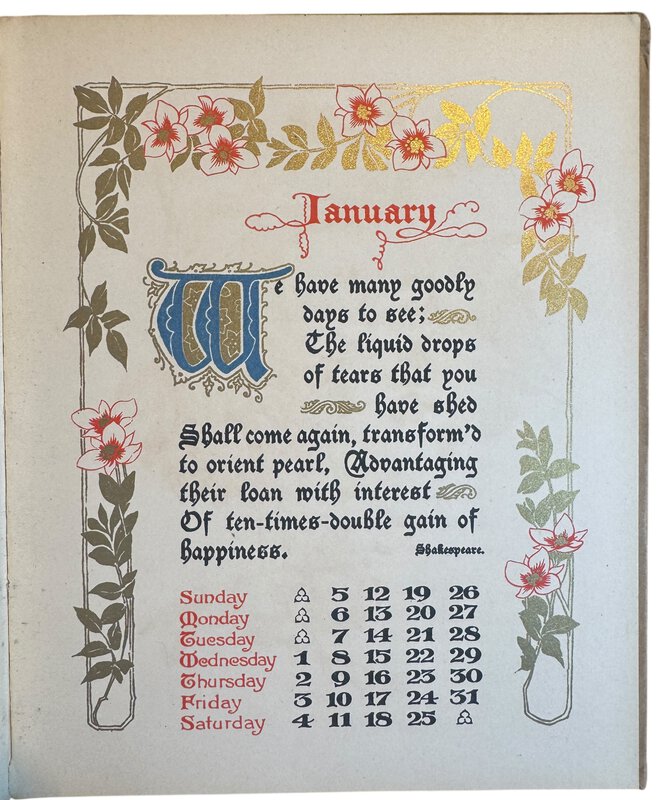 January
We have many goodly
days to see;
The liquid drops
of tears that you
have shed
Shall come again, transform'd
to orient pearl, Advantaging
their loan with interest
Of ten-times-double gain of
happiness.
Shakespeare.
Sunday 5 12 19 26
Monday 6 13 20 27
Tuesday 7 14 21 28
Wednesday 1 8 15 22 29
Thursday 2 9 16 23 30
Friday 3 10 17 24 31
Saturday 4 11 18 25